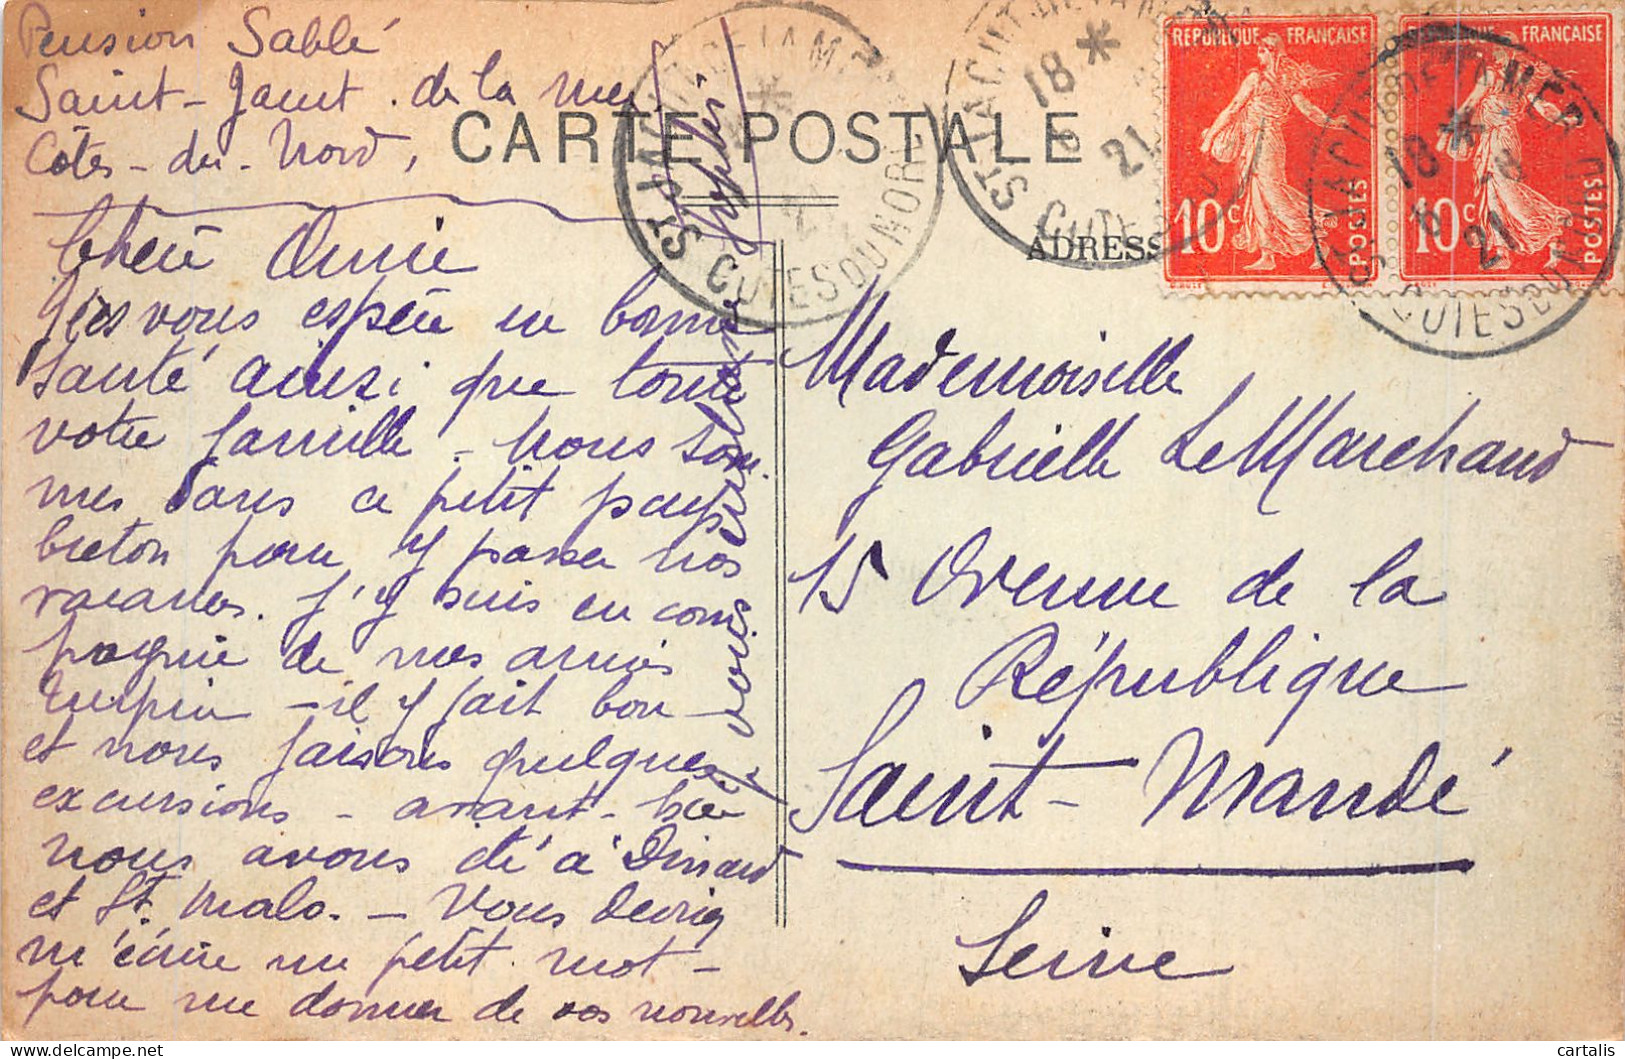 Pension Sablé
Saint-Jacut. de la mer
Côtes-du-Nord,
CARTE POSTALE
ADRESS
Chère Amie
Je vous espère en bonne
santé ainsi que toute
votre famille. Nous som.
mes dans ce petit pays
breton pour y passer nos
vacances. J'y suis en com.
pagnie de mes amis
Turpin - il y fait bon
et nous faisons quelques
excursions - avant-hier
nous avons été à Dinard
et St. Malo. - Vous devriez
m'écrire un petit mot -
pour me donner de vos nouvelles.
Mademoiselle
Gabrielle LeMarchand
15 Avenue de la
République
Saint-Mandé
Seine
REPUBLIQUE FRANÇAISE
10c POSTES
REPUBLIQUE FRANÇAISE
10c POSTES
ST JACUT DE LA MER
COTES DU NORD
18 * 21
ST JACUT DE LA MER
18 * 8 21
COTES DU NORD
cartalis